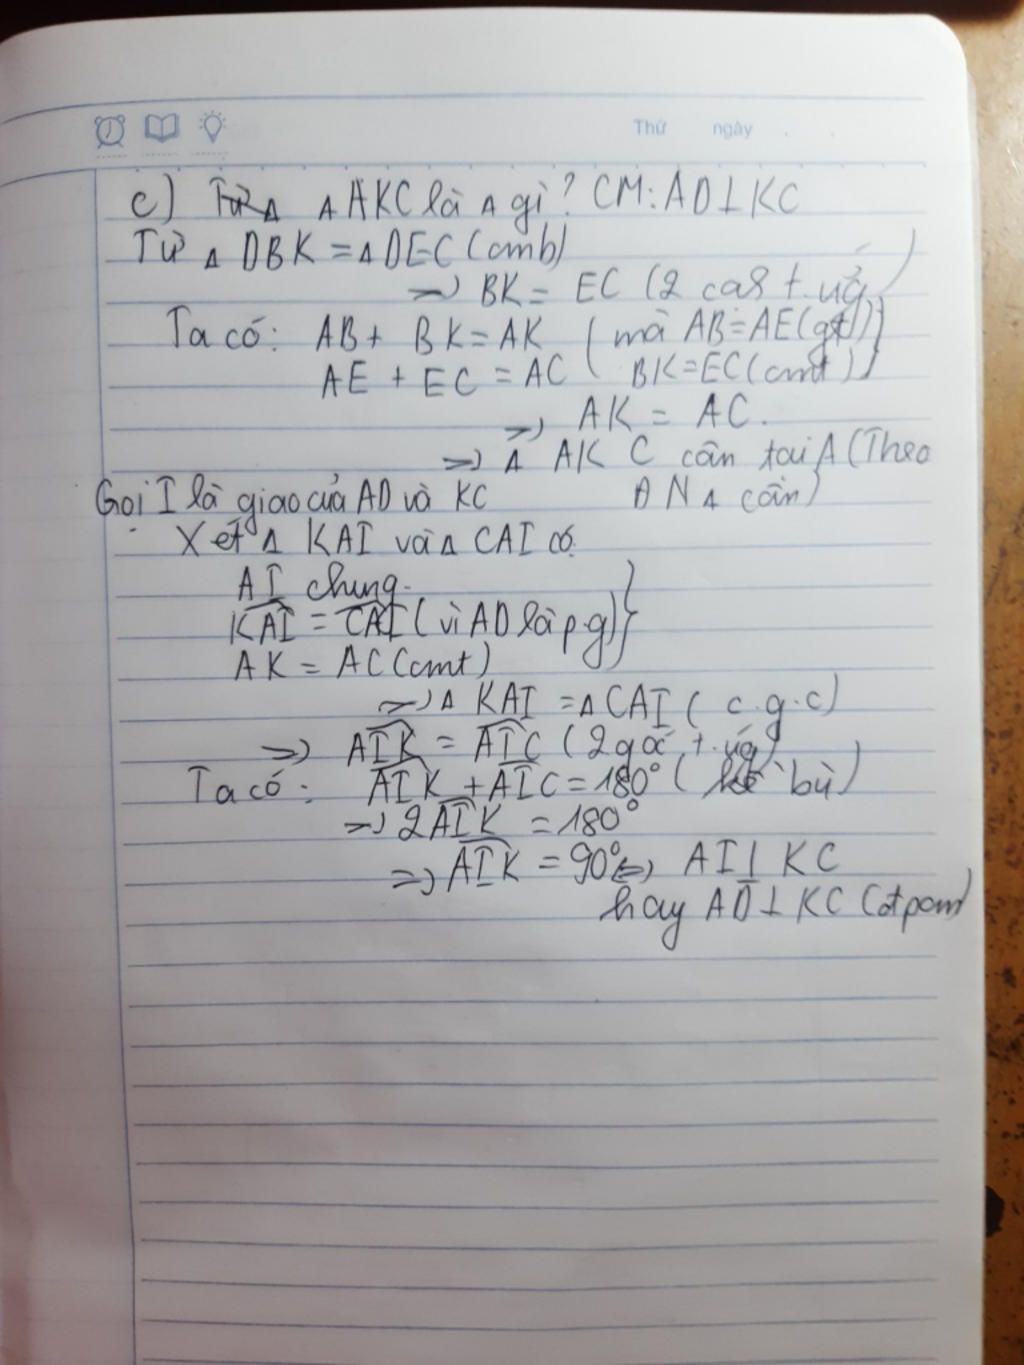 Thứ ngày
c) Từ △ △ AKC là △ gì? CM: AD⊥KC
Từ △ DBK = △ DEC (cmb)
=> BK = EC (2 cạs t.ứg)
Ta có: AB + BK = AK (mà AB = AE (gt))
AE + EC = AC ( BK = EC (cmt))
=> AK = AC.
=> △ AKC cân tại A (Theo
Gọi I là giao của AD và KC ĐN △ cân)
Xét △ KAI và △ CAI có
AI chung.
KAI = CAI (vì AD là p.g)
AK = AC (cmt)
=> △ KAI = △ CAI ( c.g.c)
=> AIK = AIC (2 góc t.ứg)
Ta có: AIK + AIC = 180° (kề bù)
=> 2AIK = 180°
=> AIK = 90° => AI⊥KC
hay AD⊥KC (đpcm)